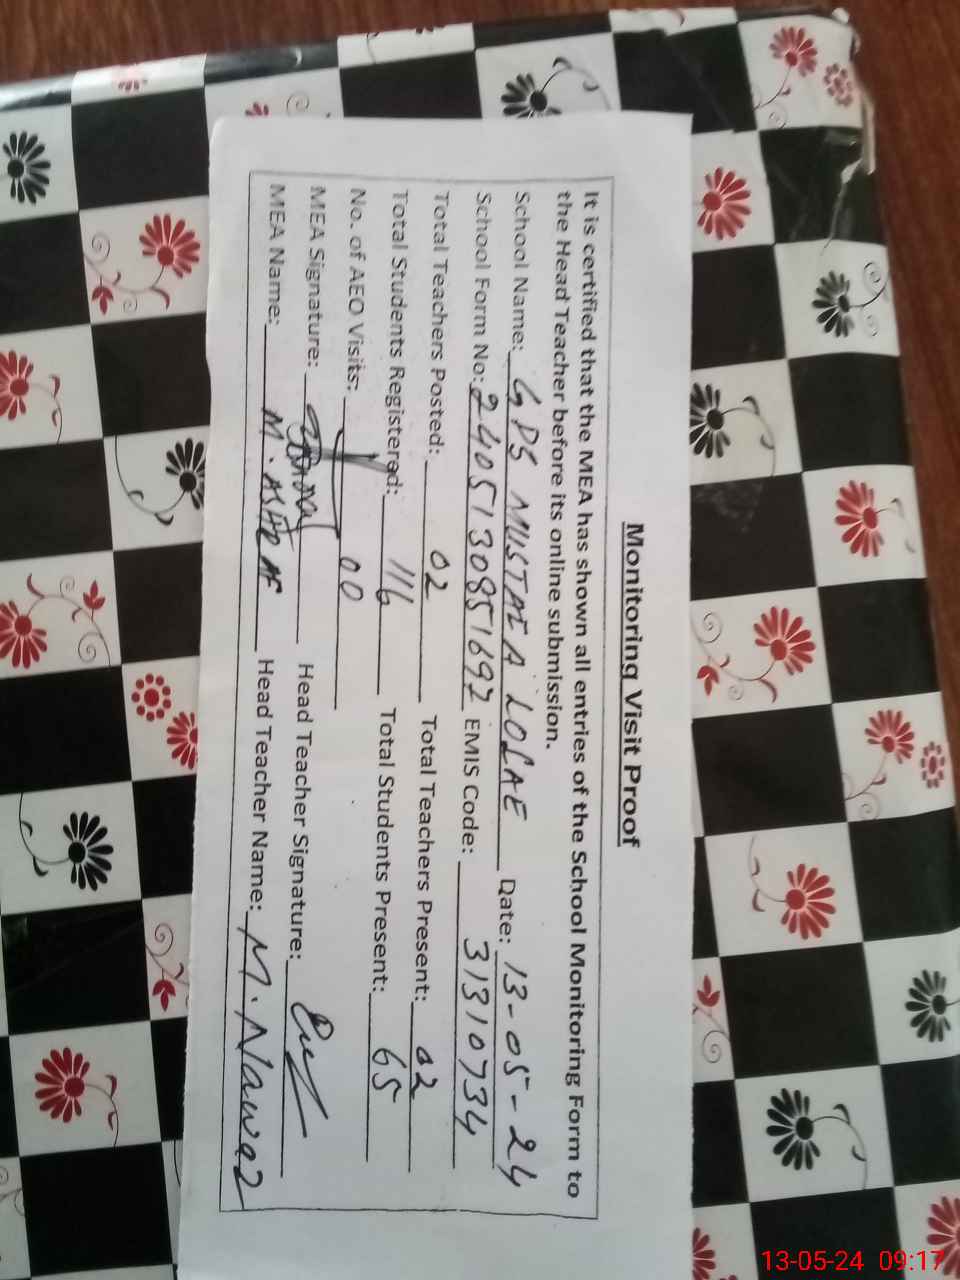 Monitoring Visit Proof
It is certified that the MEA has shown all entries of the School Monitoring Form to
the Head Teacher before its online submission.
School Name: GPS MUSTAFA LOLAE Date: 13-05-24
School Form No: 2405130851697 EMIS Code: 31310734
Total Teachers Posted: 02 Total Teachers Present: 02
Total Students Registered: 116 Total Students Present: 65
No. of AEO Visits: 00
MEA Signature: Head Teacher Signature:
MEA Name: M. ASHRAF Head Teacher Name: M. Nawaz
13-05-24 09:17